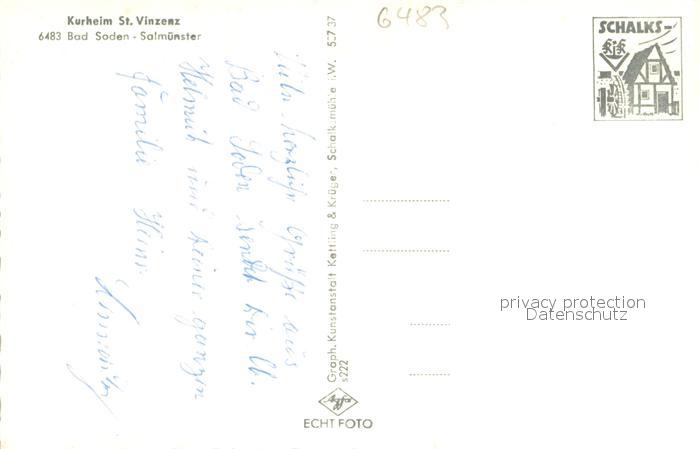 Kurheim St. Vinzenz
6483 Bad Soden - Salmünster
6483
SCHALKS-
KjK
Graph. Kunstanstalt Kettling & Krüger, Schalksmühle i.W. 507 37
s222
Agfa
ECHT FOTO
herzliche Grüße aus
Bad Soden sendet Dir lb.
Helmut und Deiner ganzen
Familie
privacy protection
Datenschutz